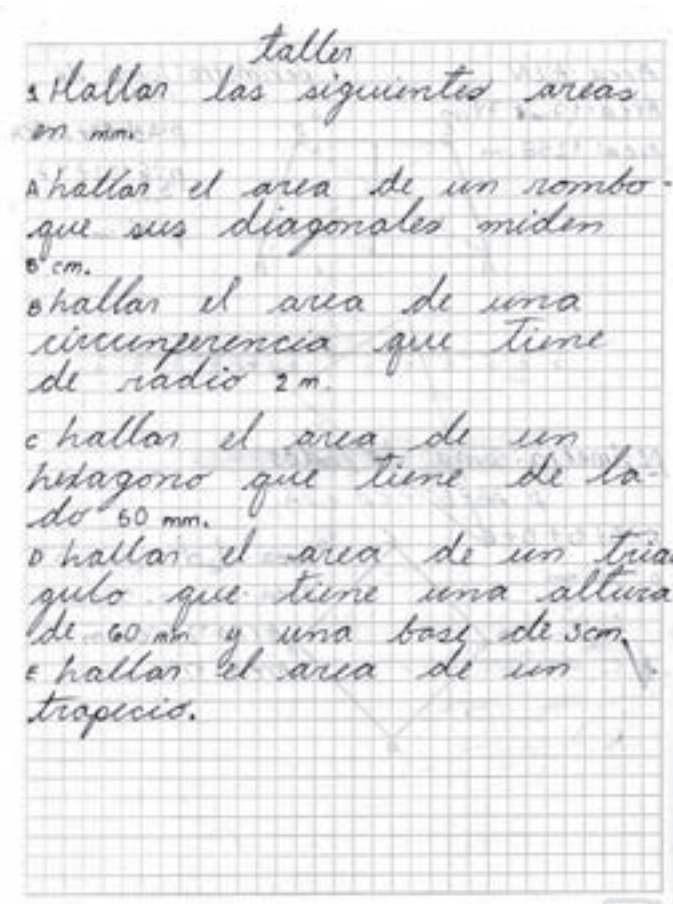 taller
1 Hallar las siguientes areas
en mm.
A hallar el area de un rombo
que sus diagonales miden
cm.
B hallar el area de una
circunferencia que tiene
de radio 2 m.
c hallar el area de un
hexagono que tiene de la-
do 50 mm.
D hallar el area de un trian
gulo que tiene una altura
de 60 mm y una base de 3cm.
E hallar el area de un
trapecio.